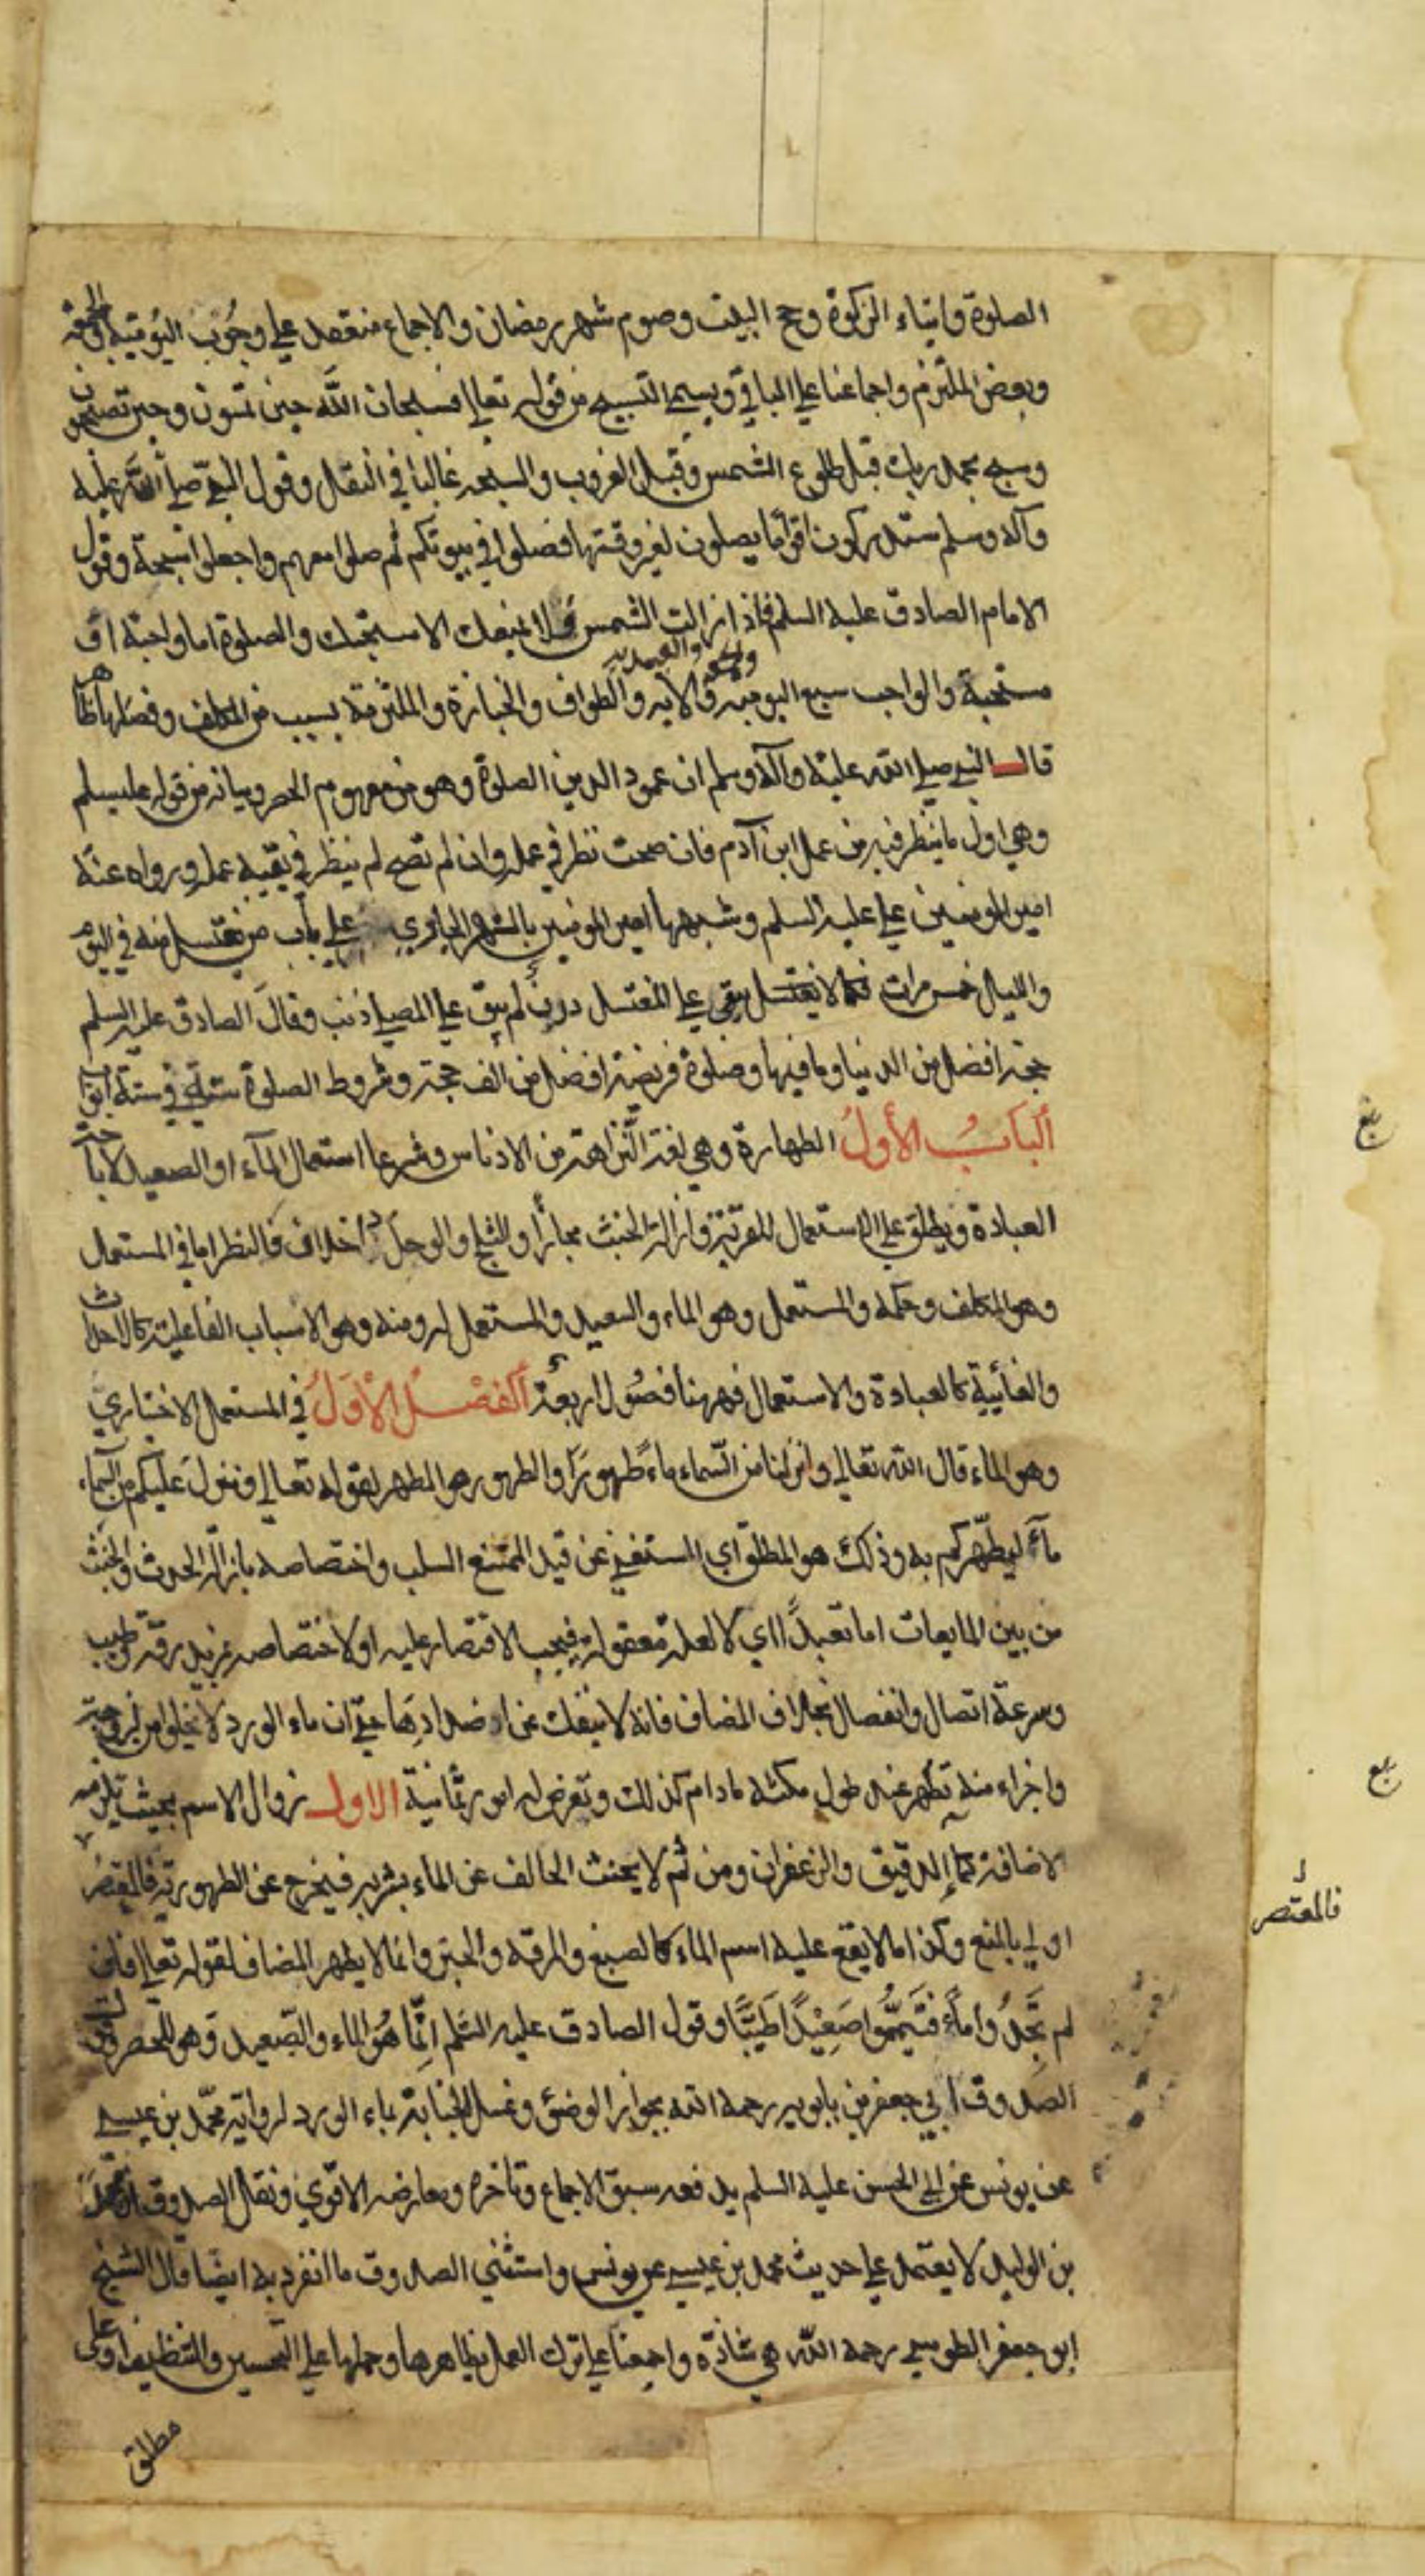 الصلوة وايتاء الزكوة وحج البيت وصوم شهر رمضان والاجماع منعقد علي وجوب اليومية والجمعة
وبعض الملتزم واجماعنا علي الباقي ويسمي التسبيح من قوله تعالي فسبحان الله حين تمسون وحين تصبحون
وسبح بحمد ربك قبل طلوع الشمس وقبل الغروب والسبحه غالبا في النفل وقول النبي صلي الله عليه
وآله وسلم ستدركون اقواما يصلون لغير وقتها فصلوا في بيوتكم ثم صلوا معهم واجعلوا سبحة وقول
الامام الصادق عليه السلم فاذا زالت الشمس فلا يمنعك الا سبحتك والصلوة اما واجبة او
والجمعة والعيدين
مستحبة والواجب سبع اليومية والايه والطواف والجنازة والملتزمة بسبب من المكلف وفضلها ظاهر
قال النبي صلي الله عليه وآله وسلم ان عمود الدين الصلوة وهو من مفهوم الحصر وبيانه من قوله عليه سلم
وهي اول ما ينظر فيه من عمل ابن آدم فان صحت نظر في عمله وان لم تصح لم ينظر في بقية عمله ورواه عنه
امير المومنين علي عليه السلم وشبهها امير المومنين بالنهر الجاري علي باب من يغتسل منه في اليوم
والليل خمس مرات فكما لا يبقي علي المغتسل درن لم يبق علي المصلي ذنب وقال الصادق عليه السلم
حجة افضل من الدنيا وما فيها وصلوة فريضة افضل من الف حجة وشروط الصلوة ستة في ستة ابواب
الباب الأول الطهارة وهي لغة النزاهة من الادناس وشرعا استعمال المآء او الصعيد لاباحة
العبادة ويطلق علي الاستعمال للقربة وازالة الخبث مجازا والثلج والوحل اختلاف فالنظر اما في المستعمل
وهو المكلف وحكمه والمستعمل وهو الماء والصعيد والمستعمل له ومنه وهو الاسباب الفاعلية كالاحداث
والغائية كالعبادة والاستعمال فههنا فصول اربعة الفصل الأول في المستعمل الاختياري
وهو الماء قال الله تعالي وانزلنا من السماء ماء طهورا والطهور هو المطهر لقوله تعالي وينزل عليكم من السماء
مآء ليطهركم به وذلك هو المطلق اي المستغني عن قيد الممتنع السلب واختصاصه بازالة الحدث والخبث
من بين المايعات اما تعبدا اي لا لعلة معقولة فيجب الاقتصار عليه او لاختصاصه بمزيد رقة وطيب
وسرعة اتصال وانفصال بخلاف المضاف فانه لا ينفك عن اضدادها حتي ان ماء الورد لا يخلو من لزوجة
واجزاء منه تظهر عند طول مكثه مادام كذلك وتعرض له امور ثمانية الاول زوال الاسم بحيث يلزمه
الاضافة كماء الدقيق والزعفران ومن ثم لا يحنث الحالف عن الماء بشربه فيخرج عن الطهورية فالمعتصر
اولي بالمنع وكذا ما لا يقع عليه اسم الماء كالصبغ والمرقة والحبر وانما لا يطهر المضاف لقوله تعالي فان
لم تجدوا مآء فتيمموا صعيدا طيبا وقول الصادق عليه السلم انما هو الماء والصعيد وهو للحصر وقول
الصدوق ابي جعفر بن بابويه رحمه الله بجواز الوضوء وغسل الجنابة بماء الورد لرواية محمد بن عيسي
عن يونس عن ابي الحسن عليه السلم يدفعه سبق الاجماع وتاخره ومعارضة الاقوي ونقل الصدوق ان محمد
بن الوليد لا يعتمد علي حديث محمد بن عيسي عن يونس واستثني الصدوق ما انفرد به ايضا قال الشيخ
ابو جعفر الطوسي رحمه الله هي شاذة واجمعنا علي ترك العمل بظاهرها وحملها علي التحسين والتنظيف او علي
مطلق
بلغ
بلغ
فالمعتصر